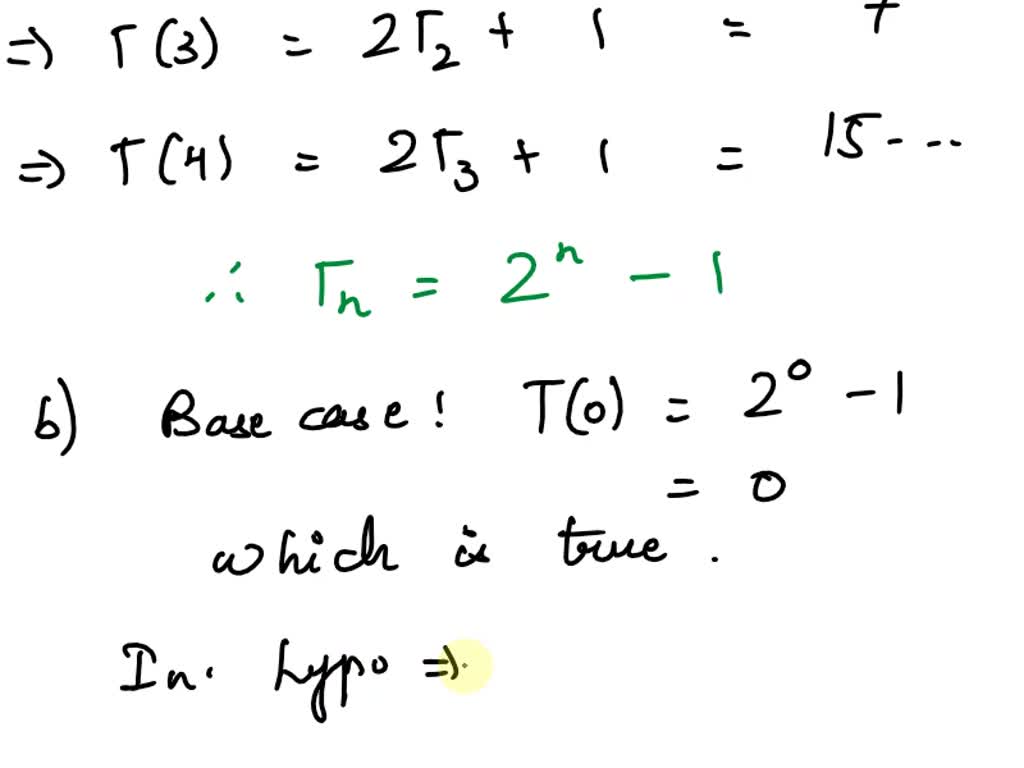 ⇒ T(3) = 2T₂ + 1 = 7
⇒ T(4) = 2T₃ + 1 = 15 - --
∴ Tₙ = 2ⁿ - 1
b) Base case! T(0) = 2⁰ - 1
= 0
which is true.
In. hypo ⇒